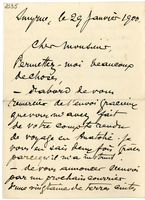 2535
Smyrne, le 29 Janvier 1900.
Cher Monsieur,
Permettez-moi beaucoup
de choses,
— d'abord de vous
remercier de l'envoi gracieux
que vous m'avez fait
de votre compte rendu
de voyage en
vous en sais deux fois
parce qu'il m'a
— de vous annoncer l'envoi
par un prochain courrier
d'une vingtaine de terres cuites